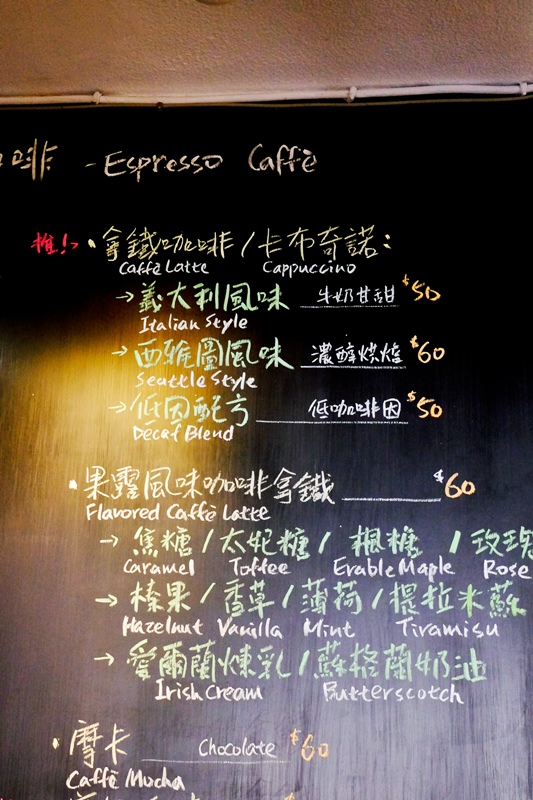 咖啡 - Espresso Caffè
推!> • 拿鐵咖啡 / 卡布奇諾:
Caffè Latte Cappuccino
→ 義大利風味 牛奶甘甜 $50
Italian Style
→ 西雅圖風味 濃醇烘焙 $60
Seattle Style
→ 低因配方 低咖啡因 $50
Decaf Blend
• 果露風味咖啡拿鐵 $60
Flavored Caffè Latte
→ 焦糖 / 太妃糖 / 楓糖 / 玫瑰
Caramel Toffee Erable Maple Rose
→ 榛果 / 香草 / 薄荷 / 提拉米蘇
Hazelnut Vanilla Mint Tiramisu
→ 愛爾蘭煉乳 / 蘇格蘭奶油
Irish Cream Butterscotch
• 摩卡 Chocolate $60
Caffè Mocha